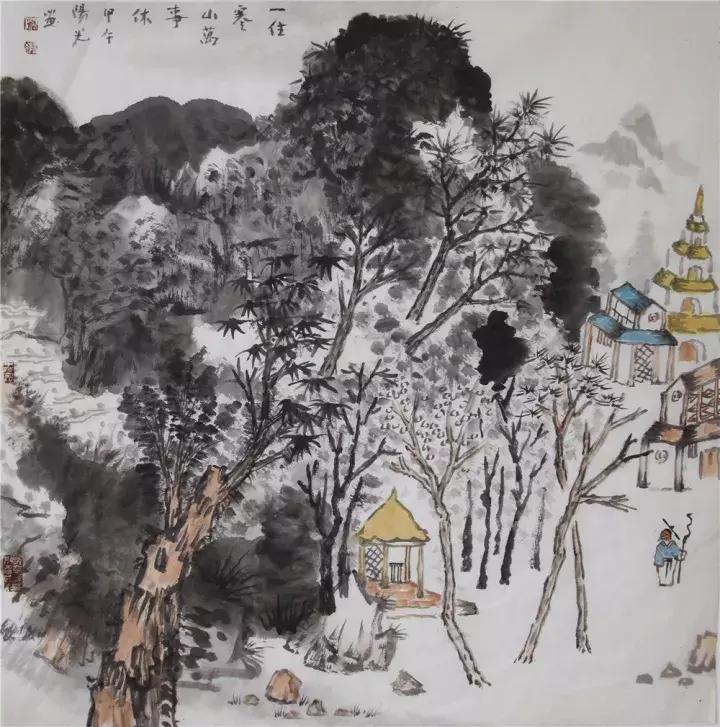 一住
寒
山萬
事
休
甲午
陽光
畫